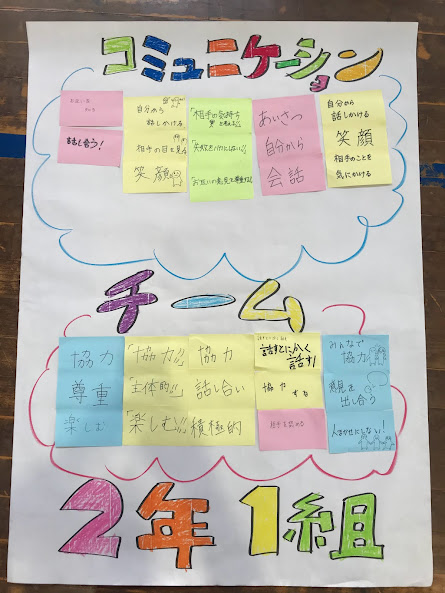 コミュニケーション
話し合う!
自分から
話しかける
相手の目を見る
笑顔
「相手の気持ちを
考える」
「失敗をバカにしない!」
「お互いの意見を尊重する」
あいさつ
自分から
会話
自分から
話しかける
笑顔
相手のことを
気にかける
チーム
協力
尊重
楽しむ
「協力!!」
「主体的!!」
「楽しむ!!」
協力
話し合い
積極的
話すとにかく
話す!
協力する
相手を認める
みんなで
協力
意見を
出し合う
人まかせにしない!
2年1組